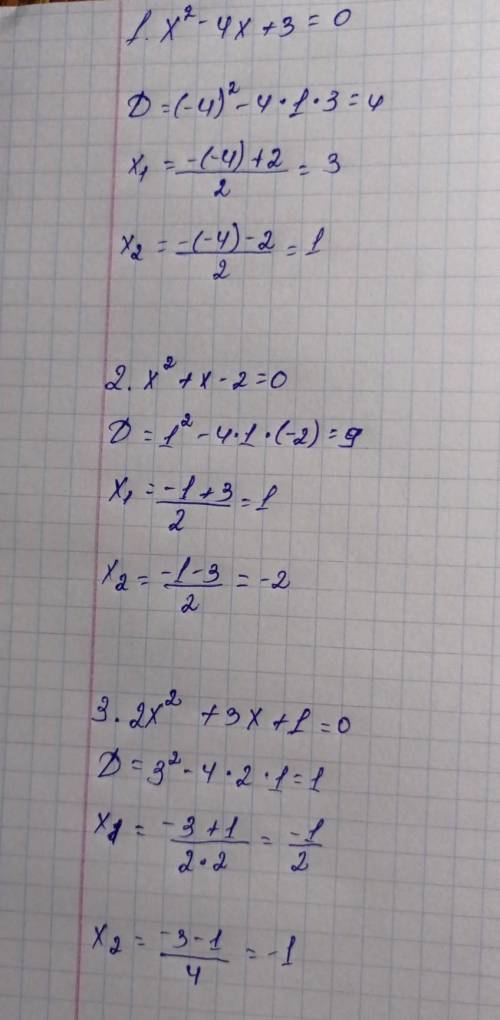 1. x² - 4x + 3 = 0
D = (-4)² - 4 · 1 · 3 = 4
x₁ = (-(-4) + 2) / 2 = 3
x₂ = (-(-4) - 2) / 2 = 1
2. x² + x - 2 = 0
D = 1² - 4 · 1 · (-2) = 9
x₁ = (-1 + 3) / 2 = 1
x₂ = (-1 - 3) / 2 = -2
3. 2x² + 3x + 1 = 0
D = 3² - 4 · 2 · 1 = 1
x₁ = (-3 + 1) / (2 · 2) = -1 / 2
x₂ = (-3 - 1) / 4 = -1